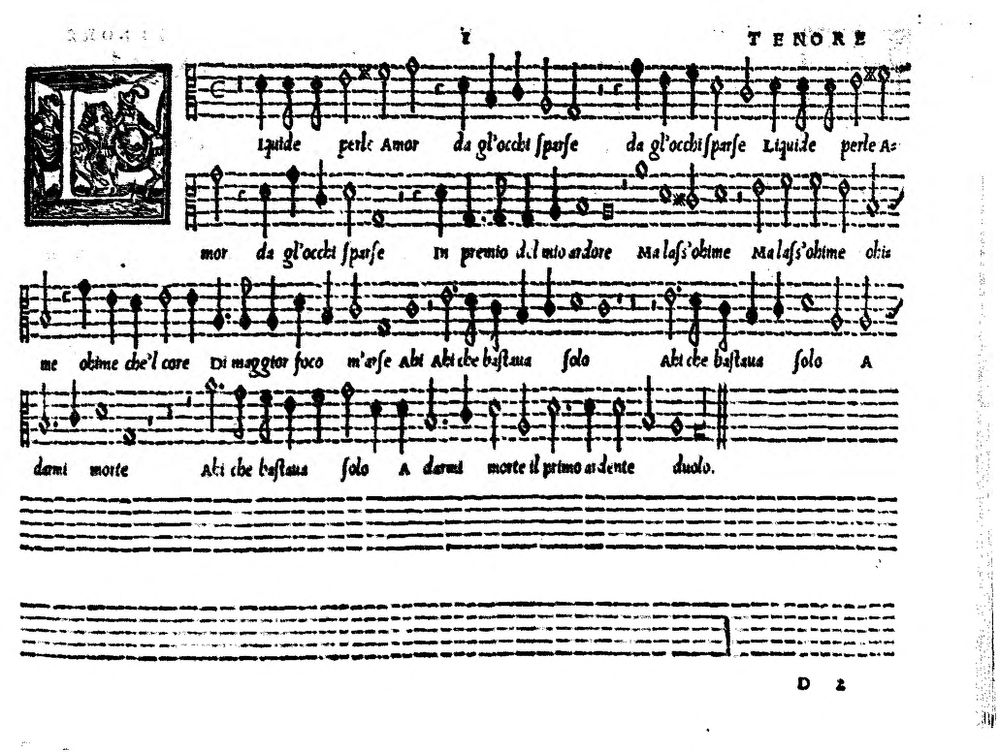 1 TENORE
Liquide perle Amor da gl'occhi sparse da gl'occhi sparse Liquide perle A-
mor da gl'occhi sparse In premio del mio ardore Ma lass'ohime Ma lass'ohime ohi-
me ohime che'l core Di maggior foco m'arse Ahi Ahi che bastaua solo Ahi che bastaua solo A
darmi morte Ahi che bastaua solo A darmi morte il primo ardente duolo.
D 2